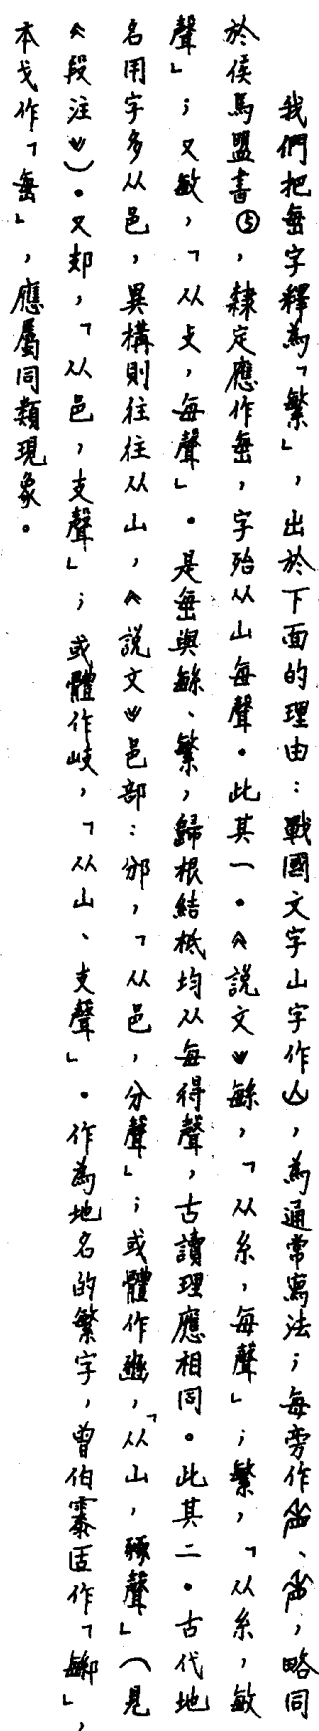 我們把𡴕字釋為「繁」，出於下面的理由：戰國文字山字作，為通常寫法；每旁作、，略同
於侯馬盟書⑤，隸定應作𡴕，字殆从山每聲。此其一。《說文》緐，「从糸，每聲」；繁，「从糸，敏
聲」；又敏，「从攴，每聲」。是𡴕與緐、繁，歸根結柢均从每得聲，古讀理應相同。此其二。古代地
名用字多从邑，異構則往往从山，《說文》邑部：邠，「从邑，分聲」；或體作豳，「从山，豩聲」（見
《段注》）。又𨙸，「从邑，支聲」；或體作岐，「从山、支聲」。作為地名的繁字，曾伯霥匜作「」，
本戈作「𡴕」，應屬同類現象。